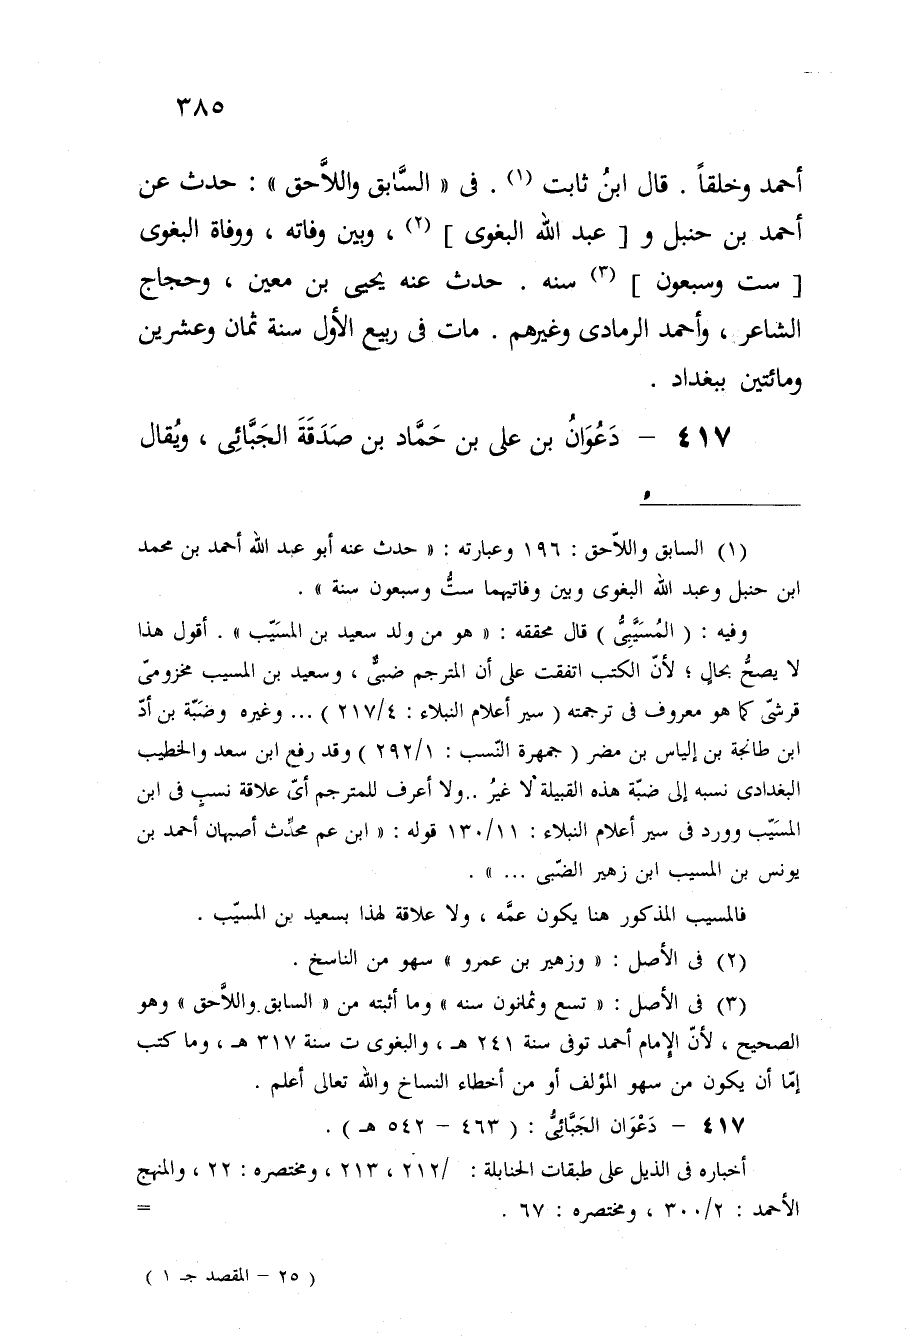 ٣٨٥
أحمد وخلقاً . قال ابنُ ثابت (١) . فى « السَّابق واللاَّحق » : حدث عن
أحمد بن حنبل و [ عبد الله البغوى ] (٢) ، وبين وفاته ، ووفاة البغوى
[ ست وسبعون ] (٣) سنه . حدث عنه يحيى بن معين ، وحجاج
الشاعر ، وأحمد الرمادى وغيرهم . مات فى ربيع الأول سنة ثمان وعشرين
ومائتين ببغداد .
٤١٧ – دَعْوَانُ بن على بن حَمَّاد بن صَدَقَةَ الجَبَّائِى ، ويُقال
(١) السابق واللاّحق : ١٩٦ وعبارته : « حدث عنه أبو عبد الله أحمد بن محمد
ابن حنبل وعبد الله البغوى وبين وفاتيهما ستٌّ وسبعون سنة » .
وفيه : ( المُسَيَّبِىُّ ) قال محققه : « هو من ولد سعيد بن المسيَّب » . أقول هذا
لا يصحُّ بحالٍ ؛ لأنّ الكتب اتفقت على أن المترجم ضبىٌّ ، وسعيد بن المسيب مخزومىّ
قرشىّ كما هو معروف فى ترجمته ( سير أعلام النبلاء : ٢١٧/٤ ) ... وغيره وضَبّة بن أدّ
ابن طابخة بن إلياس بن مضر ( جمهرة النّسب : ٢٩٢/١ ) وقد رفع ابن سعد والخطيب
البغدادى نسبه إلى ضبّة هذه القبيلة لا غيرُ .. ولا أعرف للمترجم أىّ علاقة نسبٍ فى ابن
المسَيّب وورد فى سير أعلام النبلاء : ١٣٠/١١ قوله : « ابن عم محدِّث أصبهان أحمد بن
يونس بن المسيب ابن زهير الضّبى ... » .
فالمسيب المذكور هنا يكون عمَّه ، ولا علاقة لهذا بسعيد بن المسيّب .
(٢) فى الأصل : « وزهير بن عمرو » سهو من الناسخ .
(٣) فى الأصل : « تسع وثمانون سنه » وما أثبته من « السابق واللاَّحق » وهو
الصحيح ، لأنّ الإمام أحمد توفى سنة ٢٤١ هـ ، والبغوى ت سنة ٣١٧ هـ ، وما كتب
إمّا أن يكون من سهو المؤلف أو من أخطاء النساخ والله تعالى أعلم .
٤١٧ – دَعْوَان الجَبَّائِىُّ : ( ٤٦٣ – ٥٤٢ هـ ) .
أخباره فى الذيل على طبقات الحنابلة : /٢١٢ ، ٢١٣ ، ومختصره : ٢٢ ، والمنهج
الأحمد : ٣٠٠/٢ ، ومختصره : ٦٧ . =
( ٢٥ – المقصد جـ ١ )